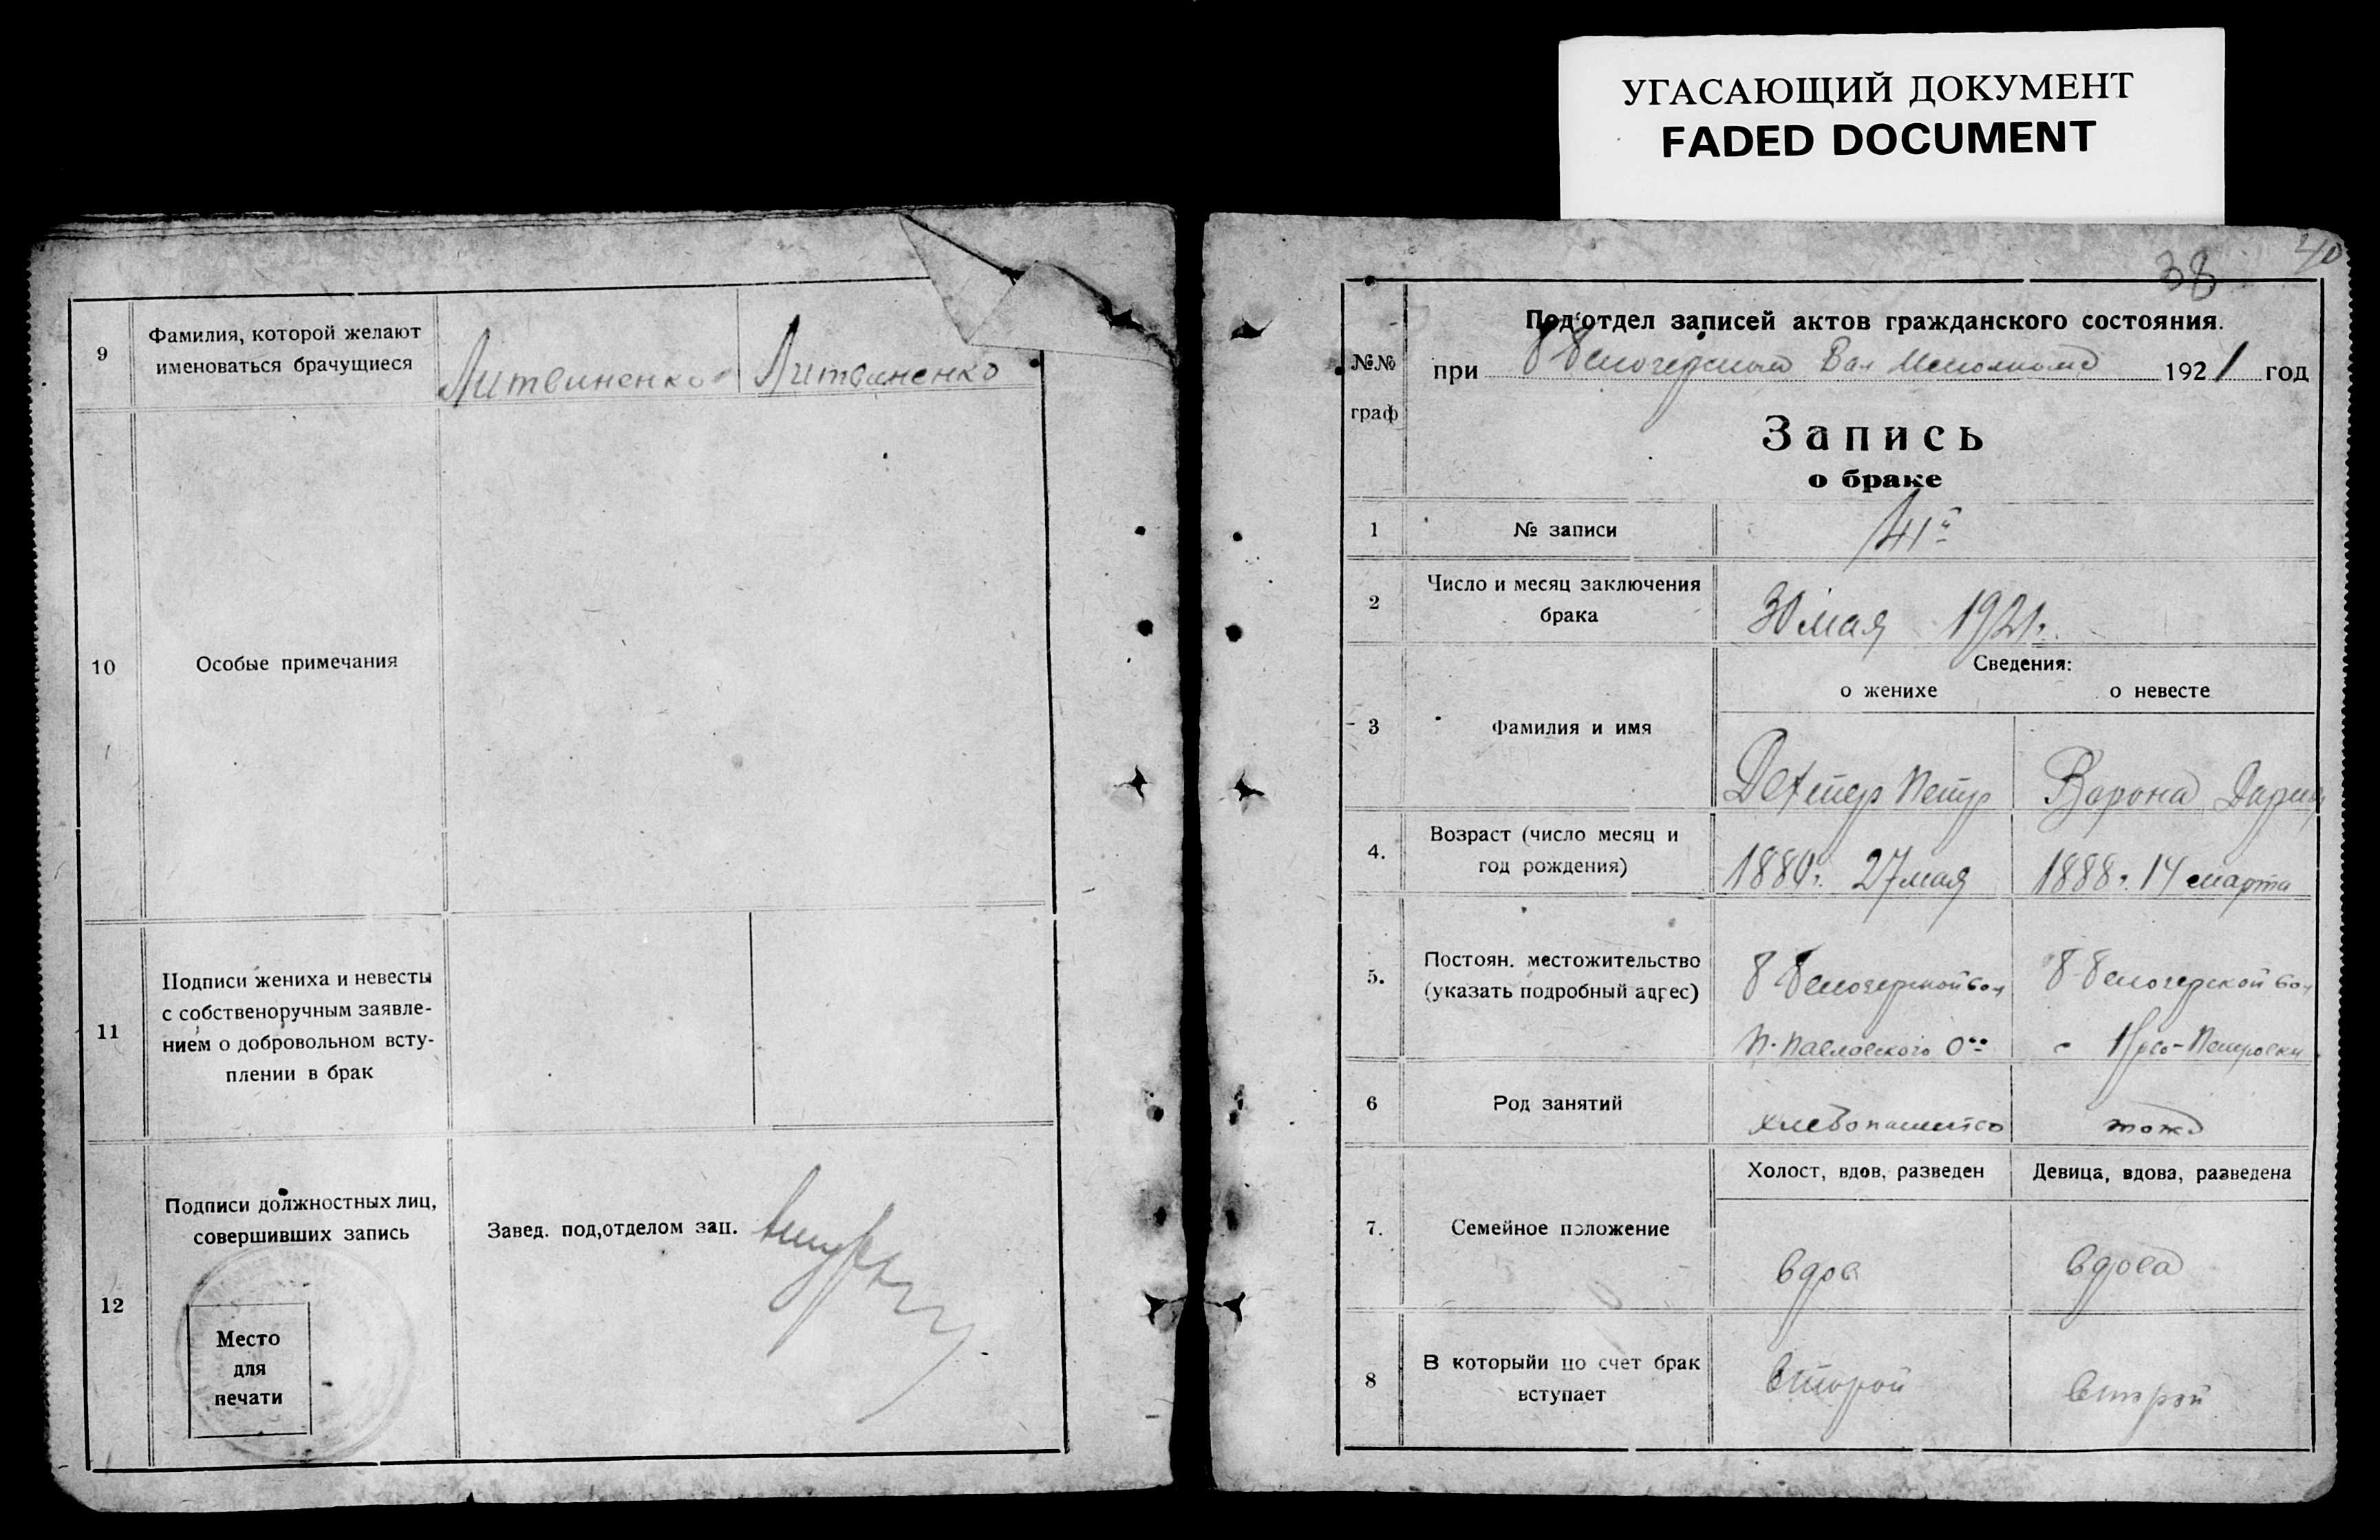 УГАСАЮЩИЙ ДОКУМЕНТ
FADED DOCUMENT
9
Фамилия, которой желают
именоваться брачущиеся
Литвиненко
Литвиненко
10
Особые примечания
11
Подписи жениха и невесты
с собственоручным заявле-
нием о добровольном всту-
плении в брак
12
Подписи должностных лиц,
совершивших запись
Завед. под,отделом зап.
Место
для
печати
38
40
№№
граф
Под'отдел записей актов гражданского состояния.
при Вол 1921 год
Запись
о браке
1
№ записи
41
2
Число и месяц заключения
брака
30 мая 1921г.
3
Фамилия и имя
Сведения:
о женихе
о невесте
Петр
Ворона Дария
4.
Возраст (число месяц и
год рождения)
27 мая
1888г. 14 марта
5.
Постоян. местожительство
(указать подробный адрес)
вол
П-Павловского О-во
вол
Петровки
6
Род занятий
хлебопашество
тожа
7.
Семейное положение
Холост, вдов, разведен
Девица, вдова, разведена
вдов
вдова
8
В которыйи по счет брак
вступает
второй
второй